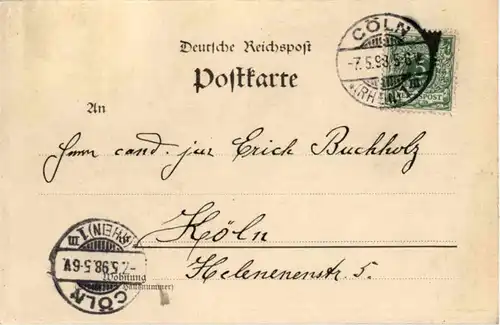 CÖLN
-7.5.98.5-6V.
*(RHEIN)1m
Deutsche Reichspost
Postkarte
An
Herrn cand. jur Erich Buchholz
Köln
Helenenenstr. 5.
CÖLN
-7.5.98.5-6V.
(RHEIN)1
Wohnung
Hausnummer)